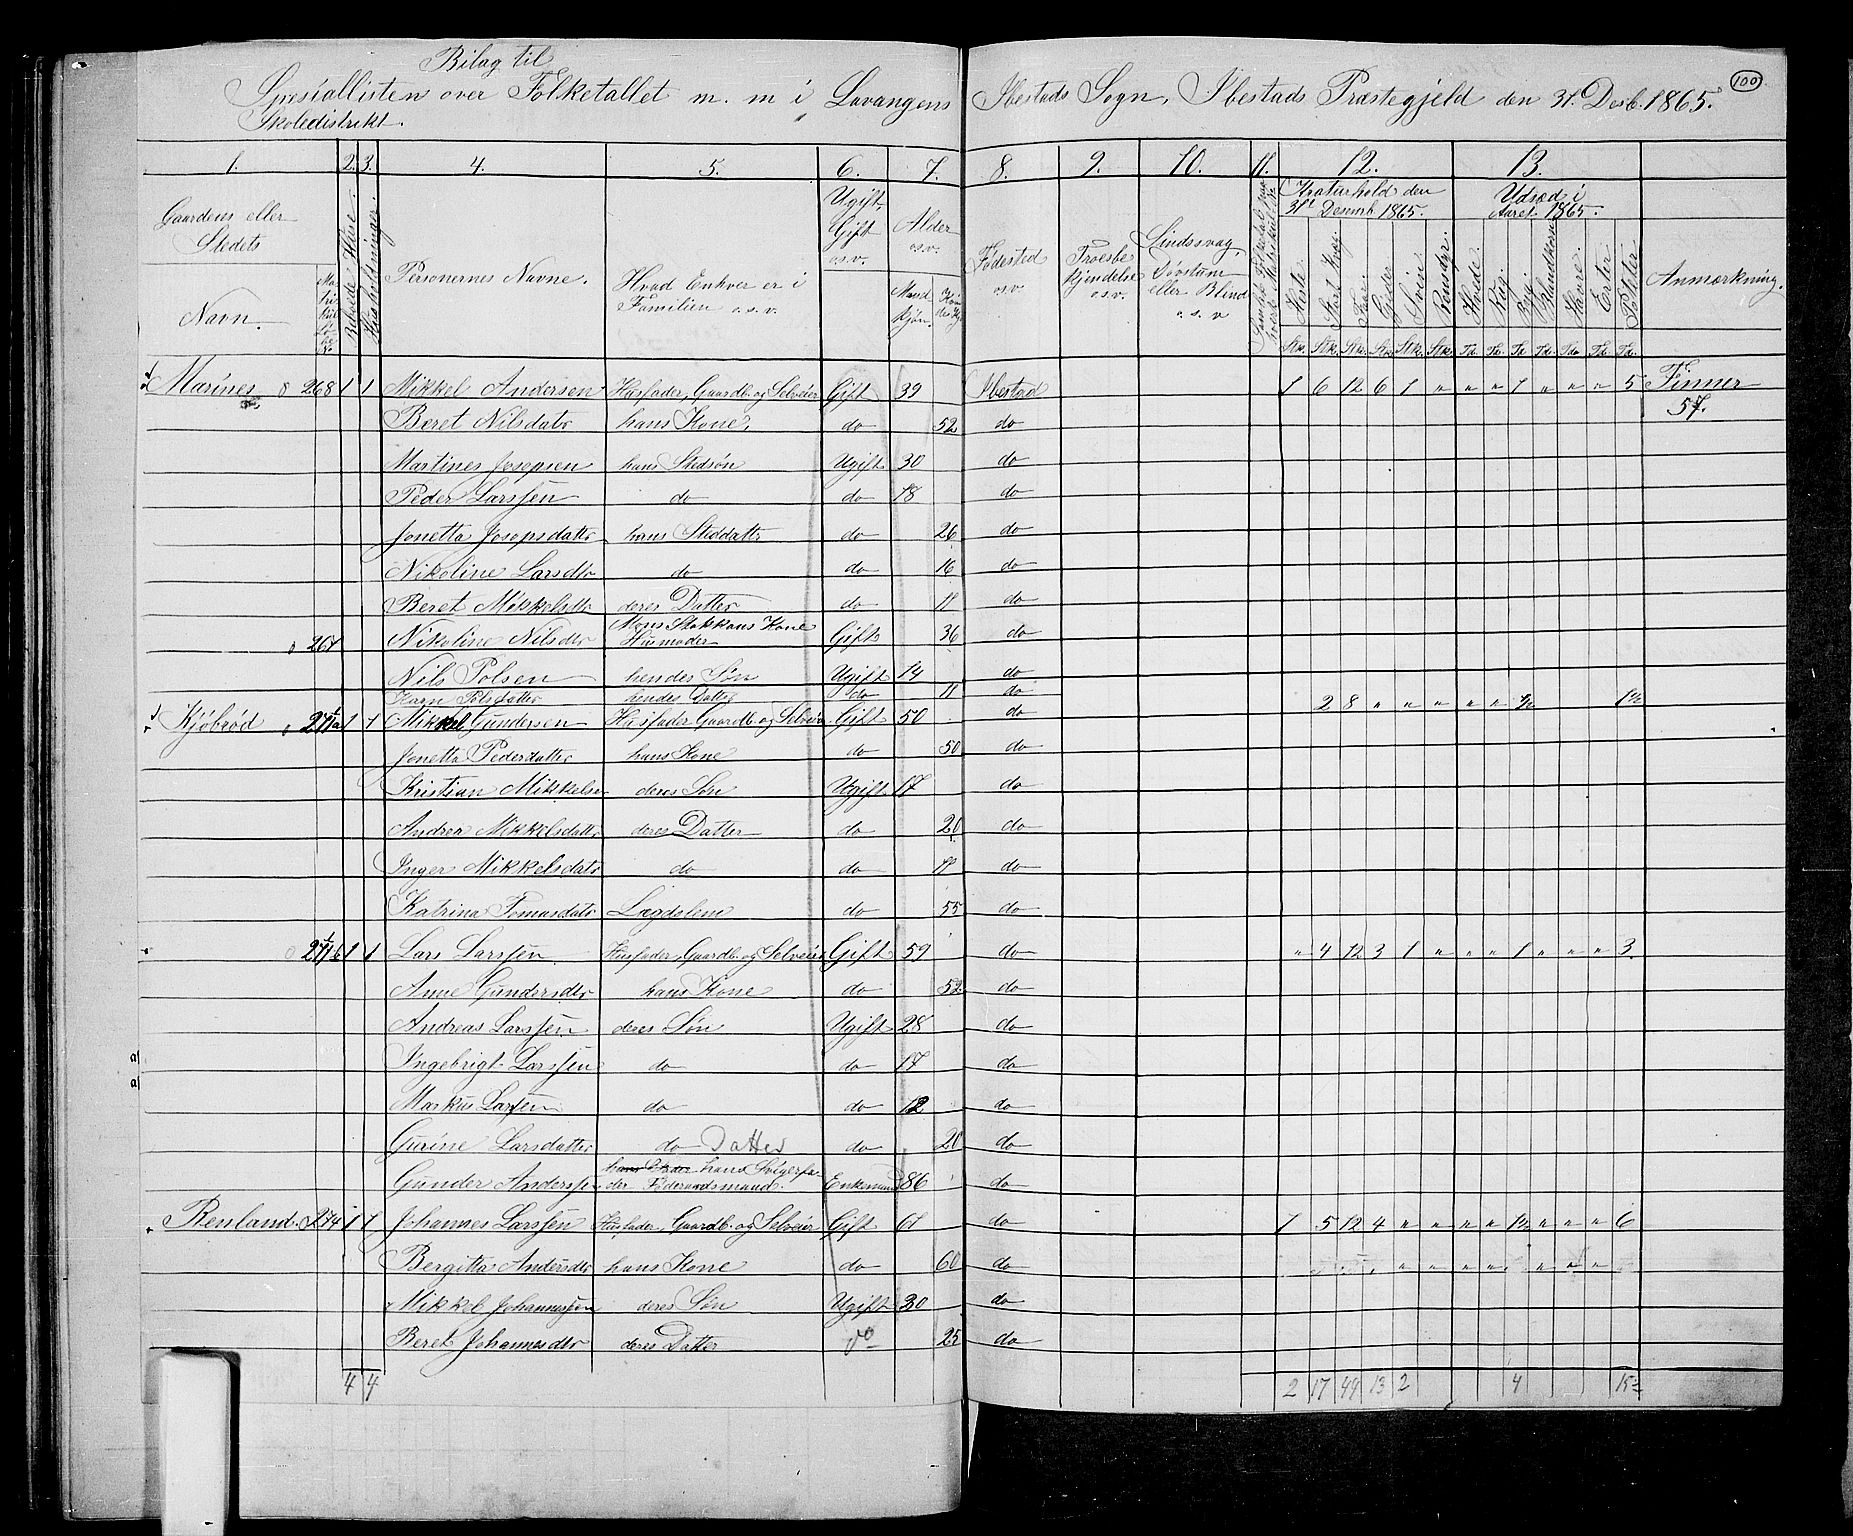 Bilag til
Spesiallisten over Folketallet m. m i Lavangens Ibestads Sogn, Ibestads Præstegjeld den 31. Desb. 1865.
Skoledistrikt.
100
1. 2. 3. 4. 5. 6. 7. 8. 9. 10. 11. 12. 13.
Gaardens eller Stedets Navn.
Matrikul Løbe No
Beboede Huse.
Husholdninger.
Personernes Navne.
Hvad Enhver er i Familien o. s. v.
Ugift, Gift o.s.v.
Alder o.s.v.
Mand kjøn.
Fødested o.s.v.
Troesbekjendelse o.s.v.
Sindssvag, Døvstum eller Blind o. s. v
Kraturhold den 31t Desemb. 1865.
Heste. Stort Kvæg. Faar. Gjeder. Svin. Rensdyr.
Udsæd i Aaret 1865.
Hvede. Rug. Byg. Blandkorn. Havre. Erter. Poteter.
Stk. Stk. Stk. Stk. Stk. Stk. Td. Td. Td. Td. Td. Td. Td.
Anmærkning.
Marines 268 1 1 Mikkel Andersen Husfader, Gaardb. og Selveier Gift 39 Ibestad 1 6 12 6 1 " " " 1 " " " 5 Finner
57.
Beret Nilsdatr hans Kone, do 52 do
Martines Josepsen hans Stedsøn Ugift 30 do
Peder Larssen do do 18 do
Jonetta Josepsdattr hans Steddattr do 26 do
Nikoline Larsdtr do do 16 do
Beret Mikkelsdtr deres Datter do 11 do
267 Nikoline Nilsdtr Mons Stokkans Kone Husmoder Gift 36 do
Nils Polsen hendes Søn Ugift 14 do
Karn Polsdatter hendes Datter do 11 do
Kjøbrød 271 1/2 a 1 1 Mikkel Gundersen Husfader Gaardb. og Selveier Gift 50 do 2 8 " " " " " 1/2 1 1/2
Jonetta Pedersdatter hans Kone do 50 do
Kristian Mikkelsn deres Søn Ugift 17 do
Andrea Mikkelsdattr deres Datter do 20 do
Inger Mikkelsdatr do do 11 do
Katrina Tomasdatr Lægdslem do 55 do
271 b 1 1 Lars Larssen Husfader, Gaardb. og Selveier Gift 59 do " 4 12 3 1 " " " 1 " " " 3
Anne Gundersdtr hans Kone do 52 do
Andreas Larssen deres Søn Ugift 28 do
Ingebrigt Larssen do do 17 do
Markus Larssen do do 12 do
Gurine Larsdatter do Datter do 20 do
Gunder Anderssen hans Svigerfader Føderaadsmand. Enkemand 86 do
Renland. 274 1 1 Johannes Larssen Husfader, Gaardb. og Selveier Gift 67 do 1 5 12 4 " " " " 1 1/2 " " " 6
Bergitta Andersdtr hans Kone do 60 do
Mikkel Johannessen deres Søn Ugift 30 do
Beret Johannesdtr deres Datter do 25 do
4 4 2 17 44 13 2 4 15 1/2